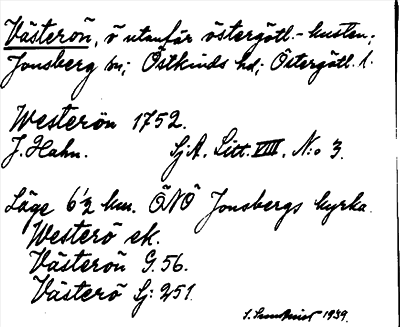 Västerön, ö utanför östergötl.-kusten;
Jonsberg sn; Östkinds hd; Östergötl. l.
Westerön 1752.
J. Hahn. SjA. Litt. VIII. N:o 3.
Läge 6½ km. ÖNÖ Jonsbergs kyrka.
Westerö ek.
Västerön G. 56.
Västerö Sj: 251.
1939.